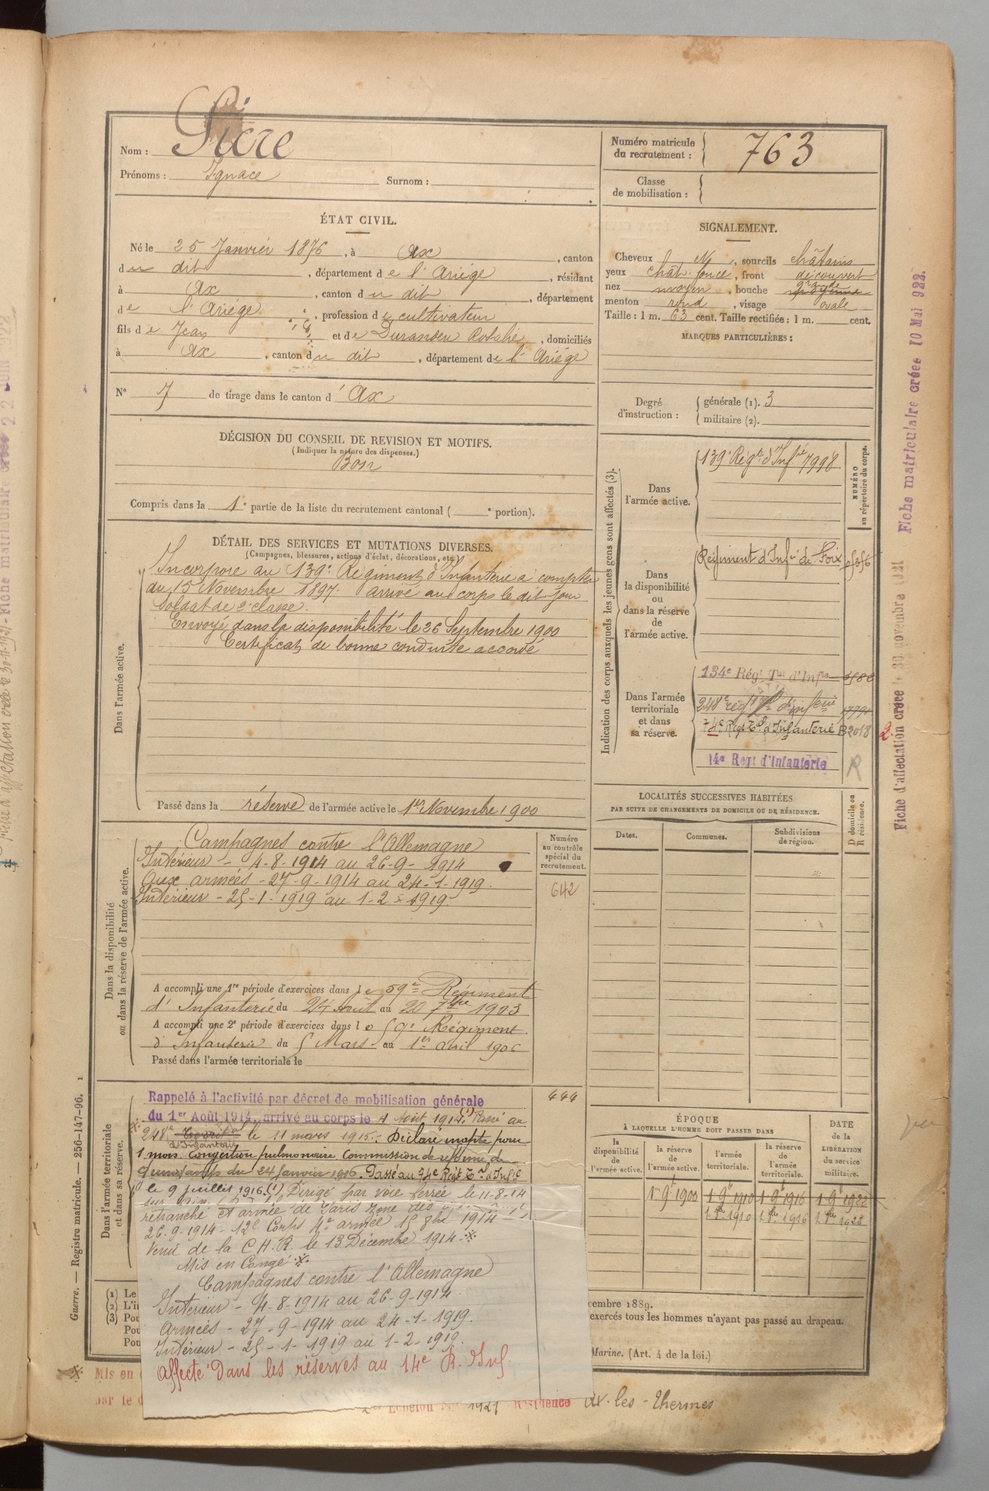 Nom : Sicre
Prénoms : Ignace Surnom :
Numéro matricule du recrutement : 763
Classe de mobilisation :
ÉTAT CIVIL.
Né le 25 Janvier 1876, à Ax, canton
du dit, département de l'Ariège, résidant
à Ax, canton du dit, département
de l'Ariège, profession de cultivateur
fils de Jean et de Durandeu Rosalie, domiciliés
à Ax, canton du dit, département de l'Ariège
N° 7 de tirage dans le canton d'Ax
DÉCISION DU CONSEIL DE REVISION ET MOTIFS.
(Indiquez la nature des dispenses.)
Bon
Compris dans la 1e partie de la liste du recrutement cantonal ( e portion).
DÉTAIL DES SERVICES ET MUTATIONS DIVERSES.
(Campagnes, blessures, actions d'éclat, décorations, etc.)
Dans l'armée active.
Incorporé au 139e Régiment d'Infanterie à compter
du 15 Novembre 1897. arrivé au corps le dit jour
Soldat de 2e classe.
Envoyé dans la disponibilité le 26 Septembre 1900
Certificat de bonne conduite accordé
Passé dans la réserve de l'armée active le 1er Novembre 1900
Dans la disponibilité ou dans la réserve de l'armée active.
Campagnes contre l'Allemagne
Intérieur - 4-8-1914 au 26-9-1914
Aux armées - 27-9-1914 au 24-1-1919.
Intérieur - 25-1-1919 au 1-2-1919.
Numéro au contrôle spécial du recrutement.
642
A accompli une 1re période d'exercices dans le 59e Régiment
d'Infanterie du 24 Août au 20 7bre 1903
A accompli une 2e période d'exercices dans le 59e Régiment
d'Infanterie du 5 Mars au 1er avril 1906
Passé dans l'armée territoriale le
Dans l'armée territoriale et dans sa réserve.
Rappelé à l'activité par décret de mobilisation générale
du 1er Août 1914, arrivé au corps le 4 Août 1914 (1) Passé au
248e d'Infanterie le 11 mars 1915. Déclaré inapte pour
1 mois Congestion pulmonaire Commission de réforme de
du 24 Janvier 1916. Passé au 74e Régt Tal d'Infie
le 9 juillet 1916 (1) Dirigé par voie ferrée le 11-8-14
retranché et armée de Paris zone des
26-9-1914 - 12e Corps 4e armée 15 8bre 1914
Venu de la C.H.R le 13 Décembre 1914
Mis en Congé
Campagnes contre l'Allemagne
Intérieur - 4-8-1914 au 26-9-1914
Armées - 27-9-1914 au 24-1-1919.
Intérieur - 25-1-1919 au 1-2-1919.
Affecté dans les réserves au 14e R. d'Inf
444
(1) Le
(2) L'in
(3) Pou
Pou
Pou
SIGNALEMENT.
Cheveux , sourcils châtains
yeux chât. foncé, front découvert
nez moyen, bouche
menton rond, visage ovale
Taille : 1 m. 63 cent. Taille rectifiée : 1 m. cent.
MARQUES PARTICULIÈRES :
Degré d'instruction : générale (1). 3
militaire (2).
Indication des corps auxquels les jeunes gens sont affectés (3).
NUMÉRO au répertoire du corps.
Dans l'armée active.
139e Régt d'Infie 7998
Dans la disponibilité ou dans la réserve de l'armée active.
Régiment d'Infie de Foix
Dans l'armée territoriale et dans sa réserve.
134e Rég. Tal d'Infie
248e régt d'infie
74e Régt Tal d'Infanterie B2018
14e Regt d'Infanterie R
LOCALITÉS SUCCESSIVES HABITÉES
PAR SUITE DE CHANGEMENTS DE DOMICILE OU DE RÉSIDENCE.
Dates. Communes. Subdivisions de région. D domicile ou R résidence.
ÉPOQUE
À LAQUELLE L'HOMME DOIT PASSER DANS
la disponibilité de l'armée active. la réserve de l'armée active. l'armée territoriale. la réserve de l'armée territoriale.
DATE de la LIBÉRATION du service militaire.
1 9bre 1900 1 9bre 1910 1 9bre 1916 1 9bre 1922
1 8bre 1910 1 8bre 1916
cembre 1889.
exercés tous les hommes n'ayant pas passé au drapeau.
Marine. (Art. 4 de la loi.)
Mis en
par le d
1921 Résidence Ax-les-Thermes
Guerre. — Registre matricule. — 256-147-96.
Fiche matriculaire créée 10 Mai 922.
Fiche d'affectation créée le 30 novembre 1921